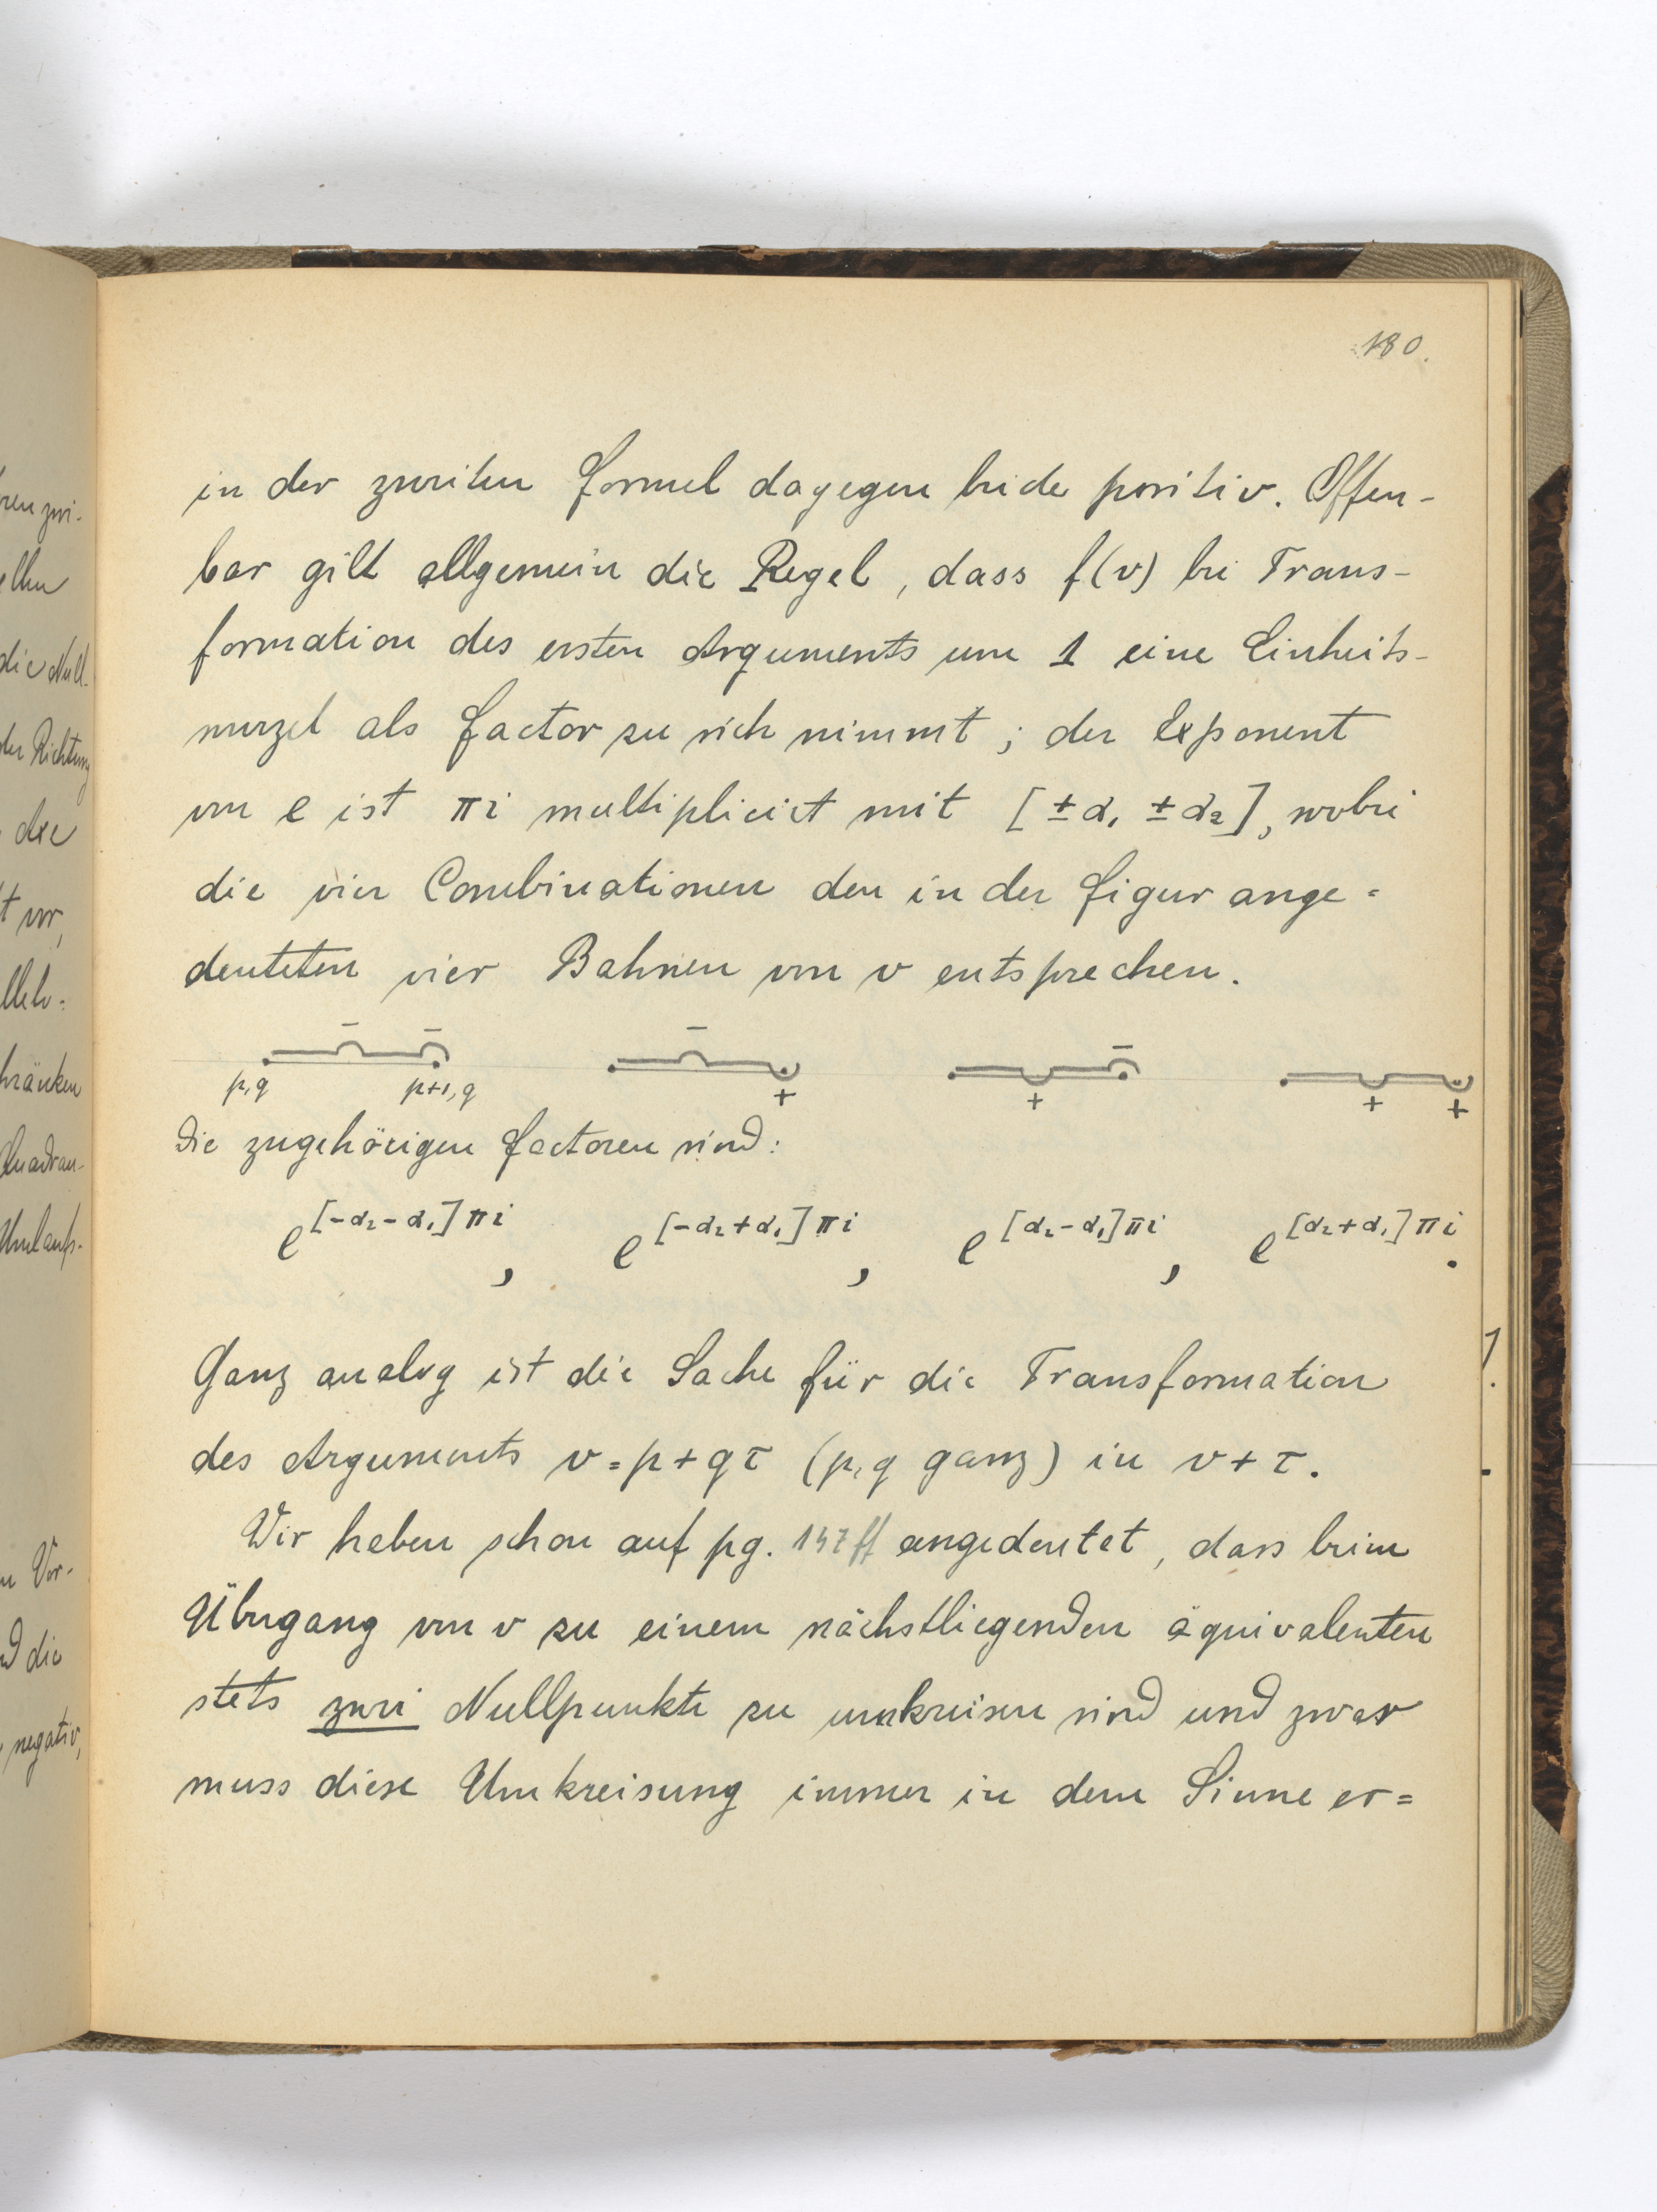 180.
in der zweiten Formel dagegen beide positiv. Offen-
bar gilt allgemein die Regel, dass f(v) bei Trans-
formation des ersten Arguments um 1 eine Einheits-
wurzel als Factor zu sich nimmt; der Exponent
von e ist πi multiplicirt mit [±α₁ ±α₂], wobei
die vier Combinationen den in der Figur ange=
deuteten vier Bahnen von v entsprechen.
− − − −
p,q p+1,q + + + +
Die zugehörigen Factoren sind:
e^{[-α₂-α₁]πi}, e^{[-α₂+α₁]πi}, e^{[α₂-α₁]πi}, e^{[α₂+α₁]πi}.
Ganz analog ist die Sache für die Transformation
des Arguments v=p+qτ (p,q ganz) in v+τ.
Wir haben schon auf pg. 147ff angedeutet, dass beim
Übergang von v zu einem nächstliegenden äquivalenten
stets zwei Nullpunkte zu umkreisen sind und zwar
muss diese Umkreisung immer in dem Sinne er=
der Richtung
die
negativ,